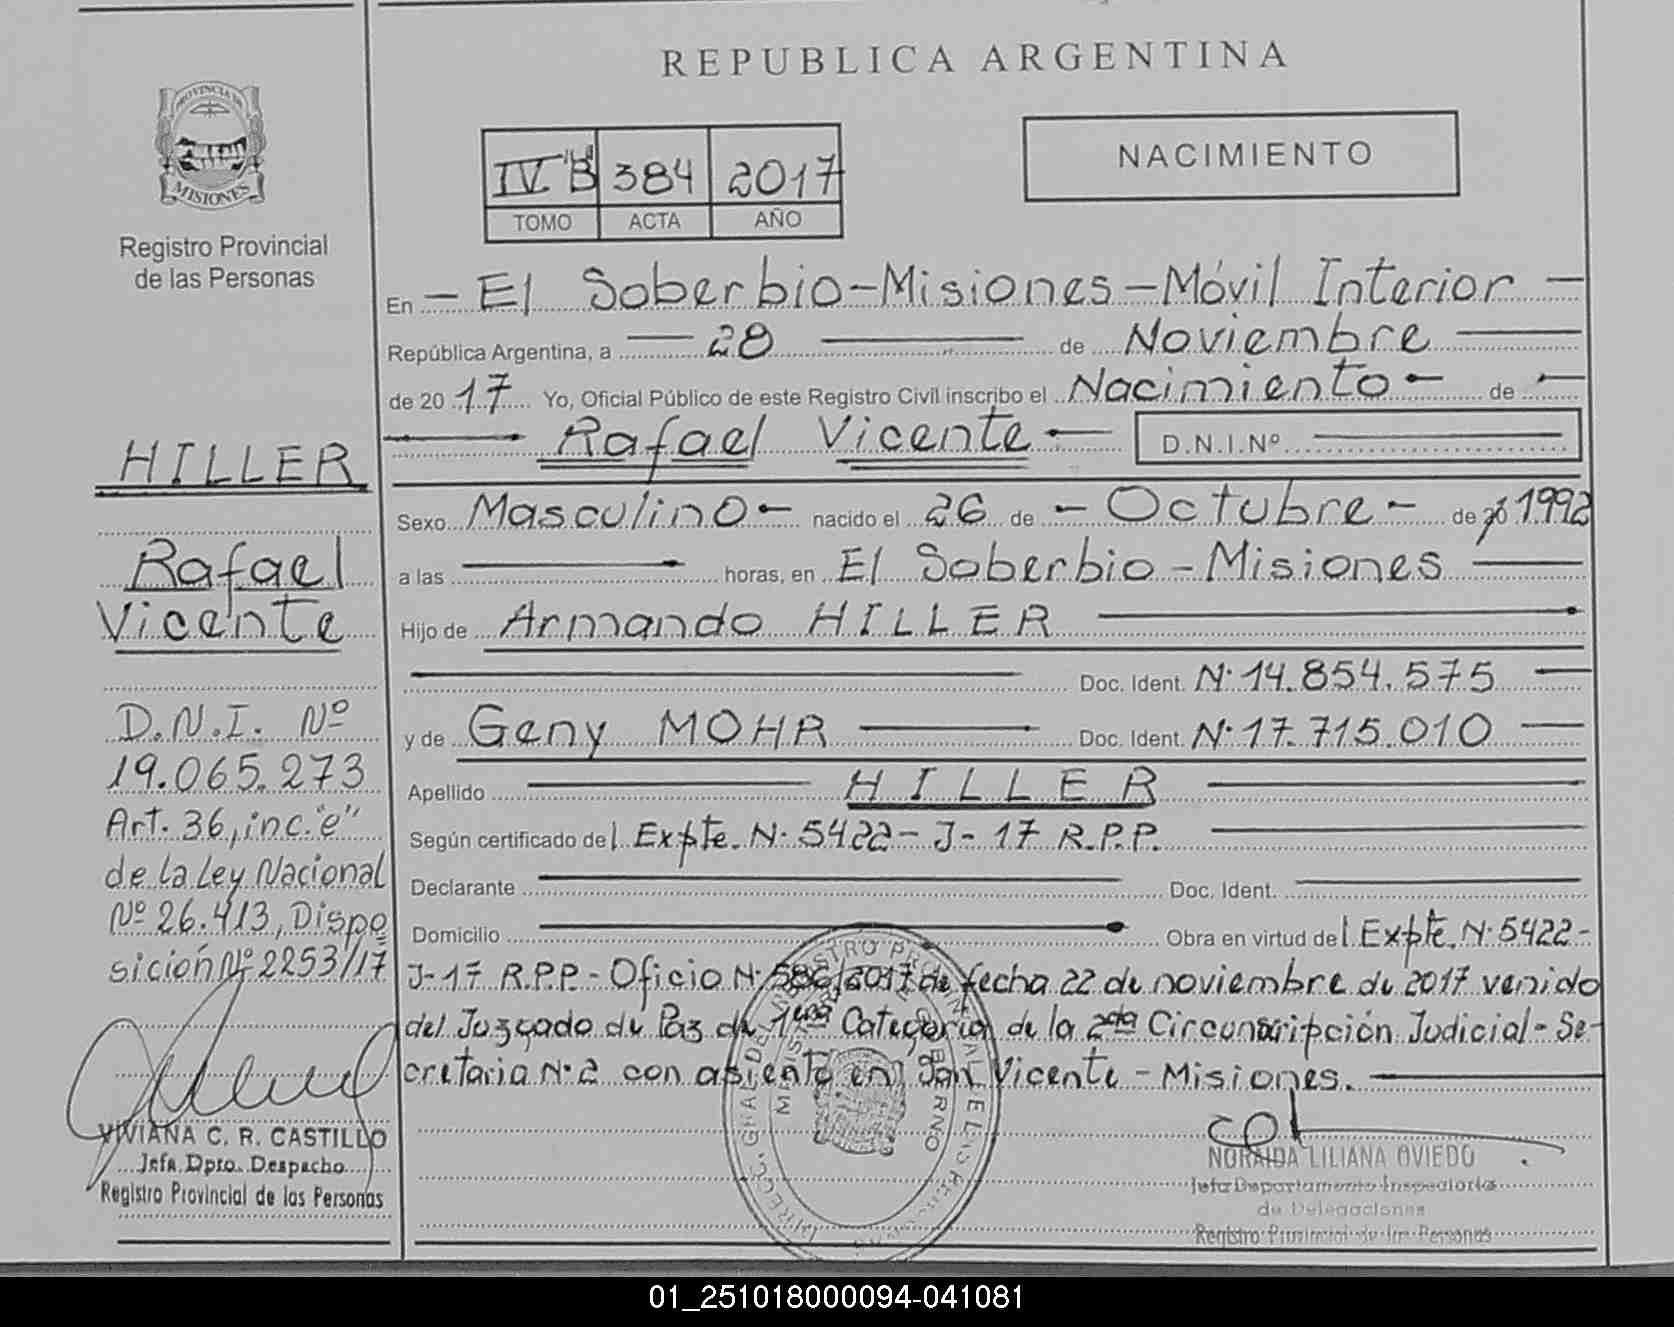 REPUBLICA ARGENTINA
PROVINCIA DE
MISIONES
Registro Provincial
de las Personas
IV "B" 384 2017
TOMO ACTA AÑO
NACIMIENTO
HILLER
Rafael
Vicente
D.N.I. Nº
19.065.273
Art. 36, inc. "e"
de la Ley Nacional
Nº 26.413, Dispo
sición Nº 2253/17
VIVIANA C. R. CASTILLO
Jefa Dpto. Despacho
Registro Provincial de las Personas
En — El Soberbio - Misiones - Móvil Interior —
República Argentina, a — 28 — de Noviembre —
de 20 17 Yo, Oficial Público de este Registro Civil inscribo el Nacimiento — de —
— Rafael Vicente — D.N.I.Nº —
Sexo Masculino — nacido el 26 de — Octubre — de 20 1992
a las — horas, en El Soberbio - Misiones —
Hijo de Armando HILLER —
— Doc. Ident. N· 14.854.575 —
y de Geny MOHR — Doc. Ident. N· 17.715.010 —
Apellido — HILLER —
Según certificado del Expte. N· 5422 - J - 17 R.P.P. —
Declarante — Doc. Ident. —
Domicilio — Obra en virtud del Expte. N· 5422 -
J-17 R.P.P. - Oficio N· 586/2017 de fecha 22 de noviembre de 2017 venido
del Juzgado de Paz de 1era Categoria de la 2da Circunscripción Judicial - Se-
cretaria N· 2 con asiento en San Vicente - Misiones. —
NORAIDA LILIANA OVIEDO
Jefa Departamento Inspectoria
de Delegaciones
Registro Provincial de las Personas
01_251018000094-041081